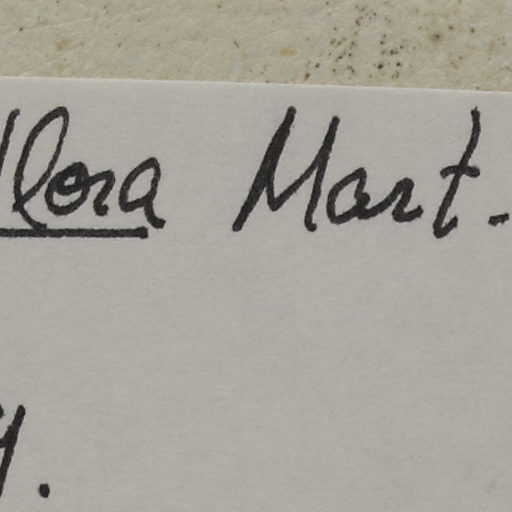 flora Mart.
y.